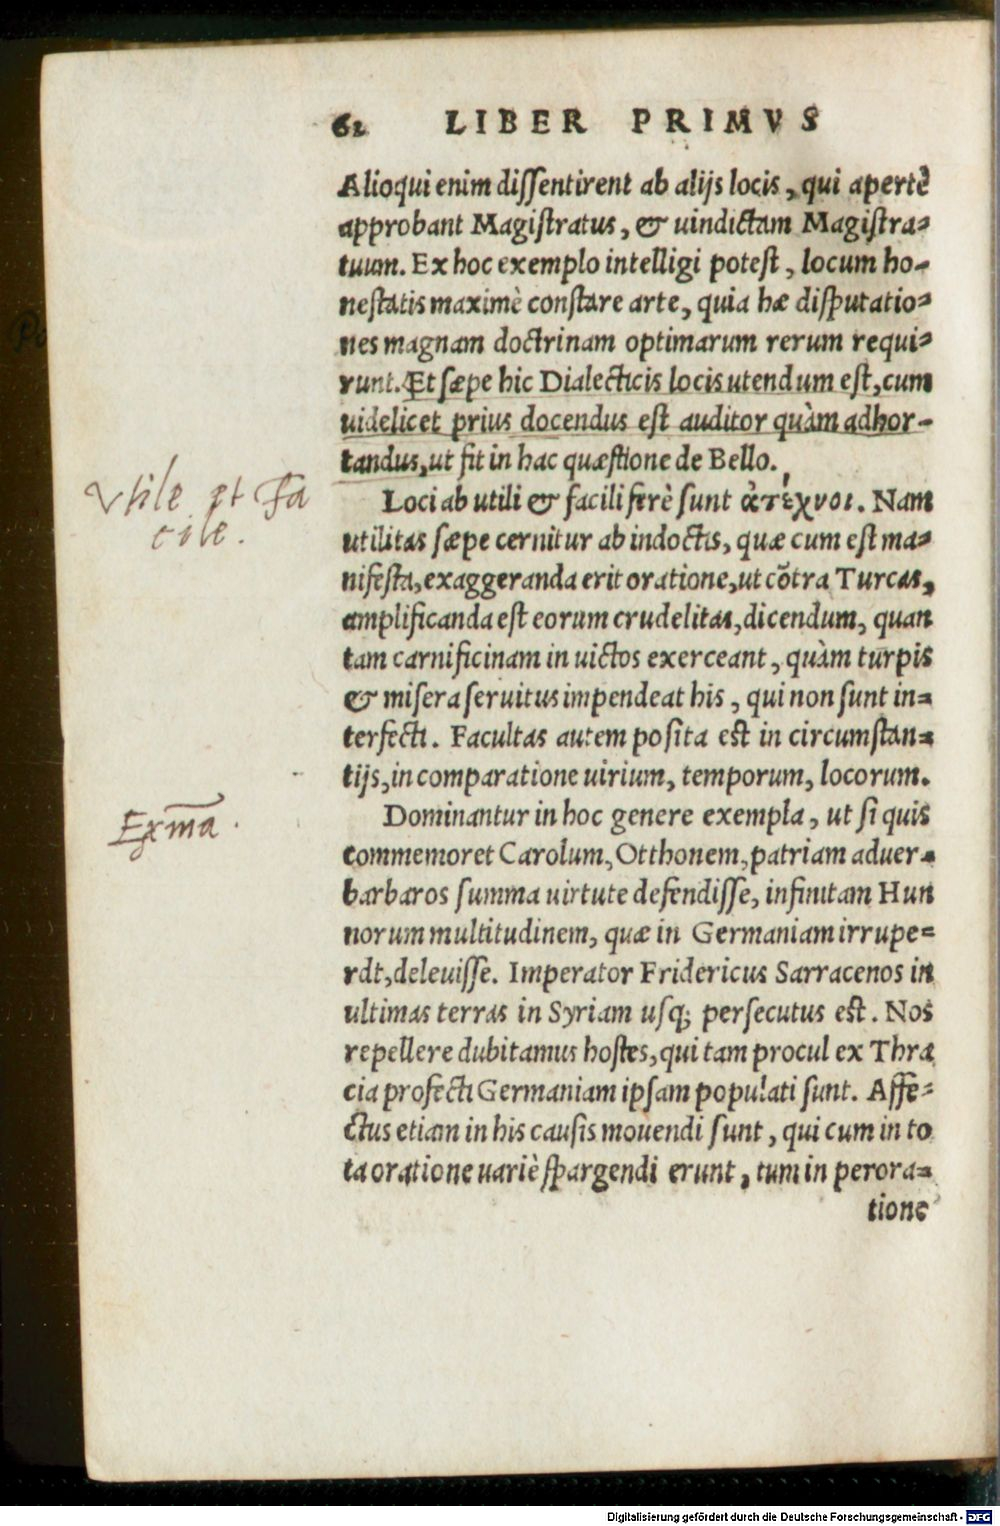 62 LIBER PRIMVS
Alioqui enim dißentirent ab alijs locis, qui apertè
approbant Magistratus, & uindictam Magistra-
tuum. Ex hoc exemplo intelligi potest, locum ho-
nestatis maximè constare arte, quia hæ disputatio-
nes magnam doctrinam optimarum rerum requi-
runt. Et sæpe hic Dialecticis locis utendum est, cum
uidelicet prius docendus est auditor quàm adhor-
tandus, ut fit in hac quæstione de Bello.
Vtile et Fa
cile.
Loci ab utili & facili ferè sunt ἀτέχνοι. Nam
utilitas sæpe cernitur ab indoctis, quæ cum est ma-
nifesta, exaggeranda erit oratione, ut cōtra Turcas,
amplificanda est eorum crudelitas, dicendum, quan
tam carnificinam in uictos exerceant, quàm turpis
& misera seruitus impendeat his, qui non sunt in-
terfecti. Facultas autem posita est in circumstan-
tijs, in comparatione uirium, temporum, locorum.
Exm̄a.
Dominantur in hoc genere exempla, ut si quis
commemoret Carolum, Otthonem, patriam aduer-
barbaros summa uirtute defendisse, infinitam Hun
norum multitudinem, quæ in Germaniam irrupe-
rāt, deleuisse. Imperator Fridericus Sarracenos in
ultimas terras in Syriam usq; persecutus est. Nos
repellere dubitamus hostes, qui tam procul ex Thra
cia profecti Germaniam ipsam populati sunt. Affe-
ctus etiam in his causis mouendi sunt, qui cum in to
ta oratione uariè spargendi erunt, tum in perora-
tione
Digitalisierung gefördert durch die Deutsche Forschungsgemeinschaft - DFG